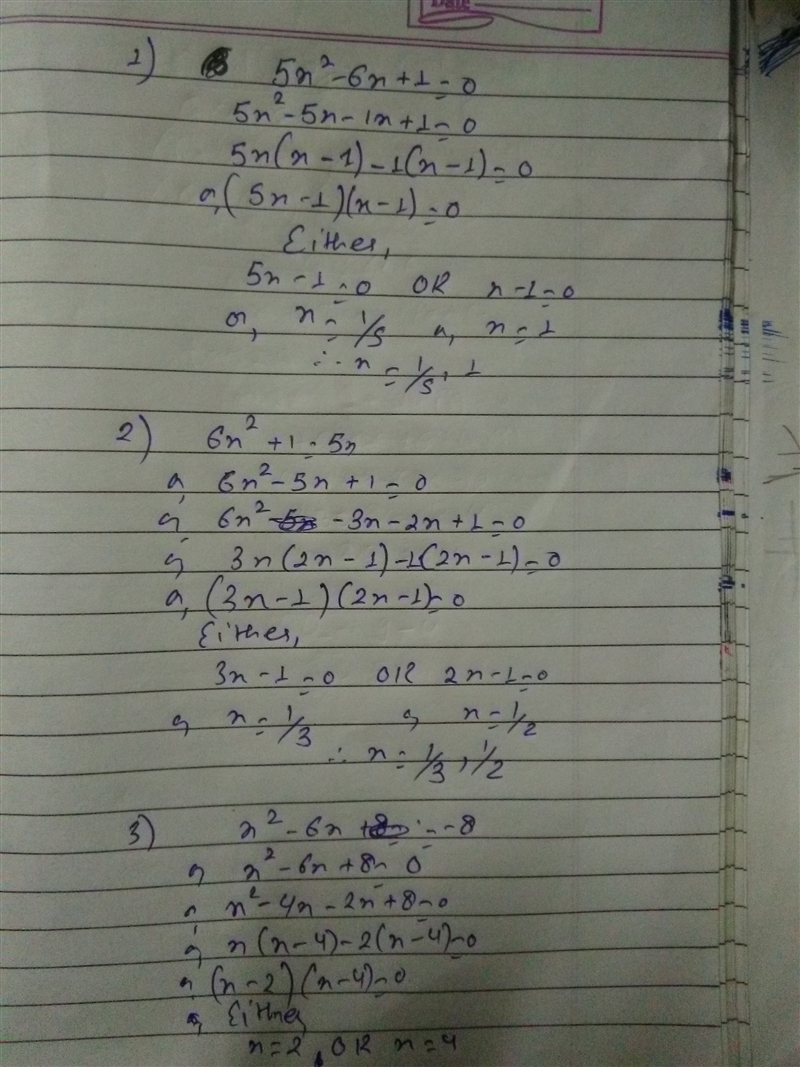 Date
1) 5x² - 6x + 1 = 0
5x² - 5x - 1x + 1 = 0
5x(x - 1) - 1(x - 1) = 0
or, (5x - 1)(x - 1) = 0
Either,
5x - 1 = 0 OR x - 1 = 0
or, x = 1/5 or, x = 1
∴ x = 1/5, 1
2) 6x² + 1 = 5x
or, 6x² - 5x + 1 = 0
or, 6x² - 3x - 2x + 1 = 0
or, 3x(2x - 1) - 1(2x - 1) = 0
or, (3x - 1)(2x - 1) = 0
Either,
3x - 1 = 0 OR 2x - 1 = 0
or, x = 1/3 or, x = 1/2
∴ x = 1/3, 1/2
3) x² - 6x = -8
or, x² - 6x + 8 = 0
or, x² - 4x - 2x + 8 = 0
or, x(x - 4) - 2(x - 4) = 0
or, (x - 2)(x - 4) = 0
or, Either
x = 2, OR x = 4